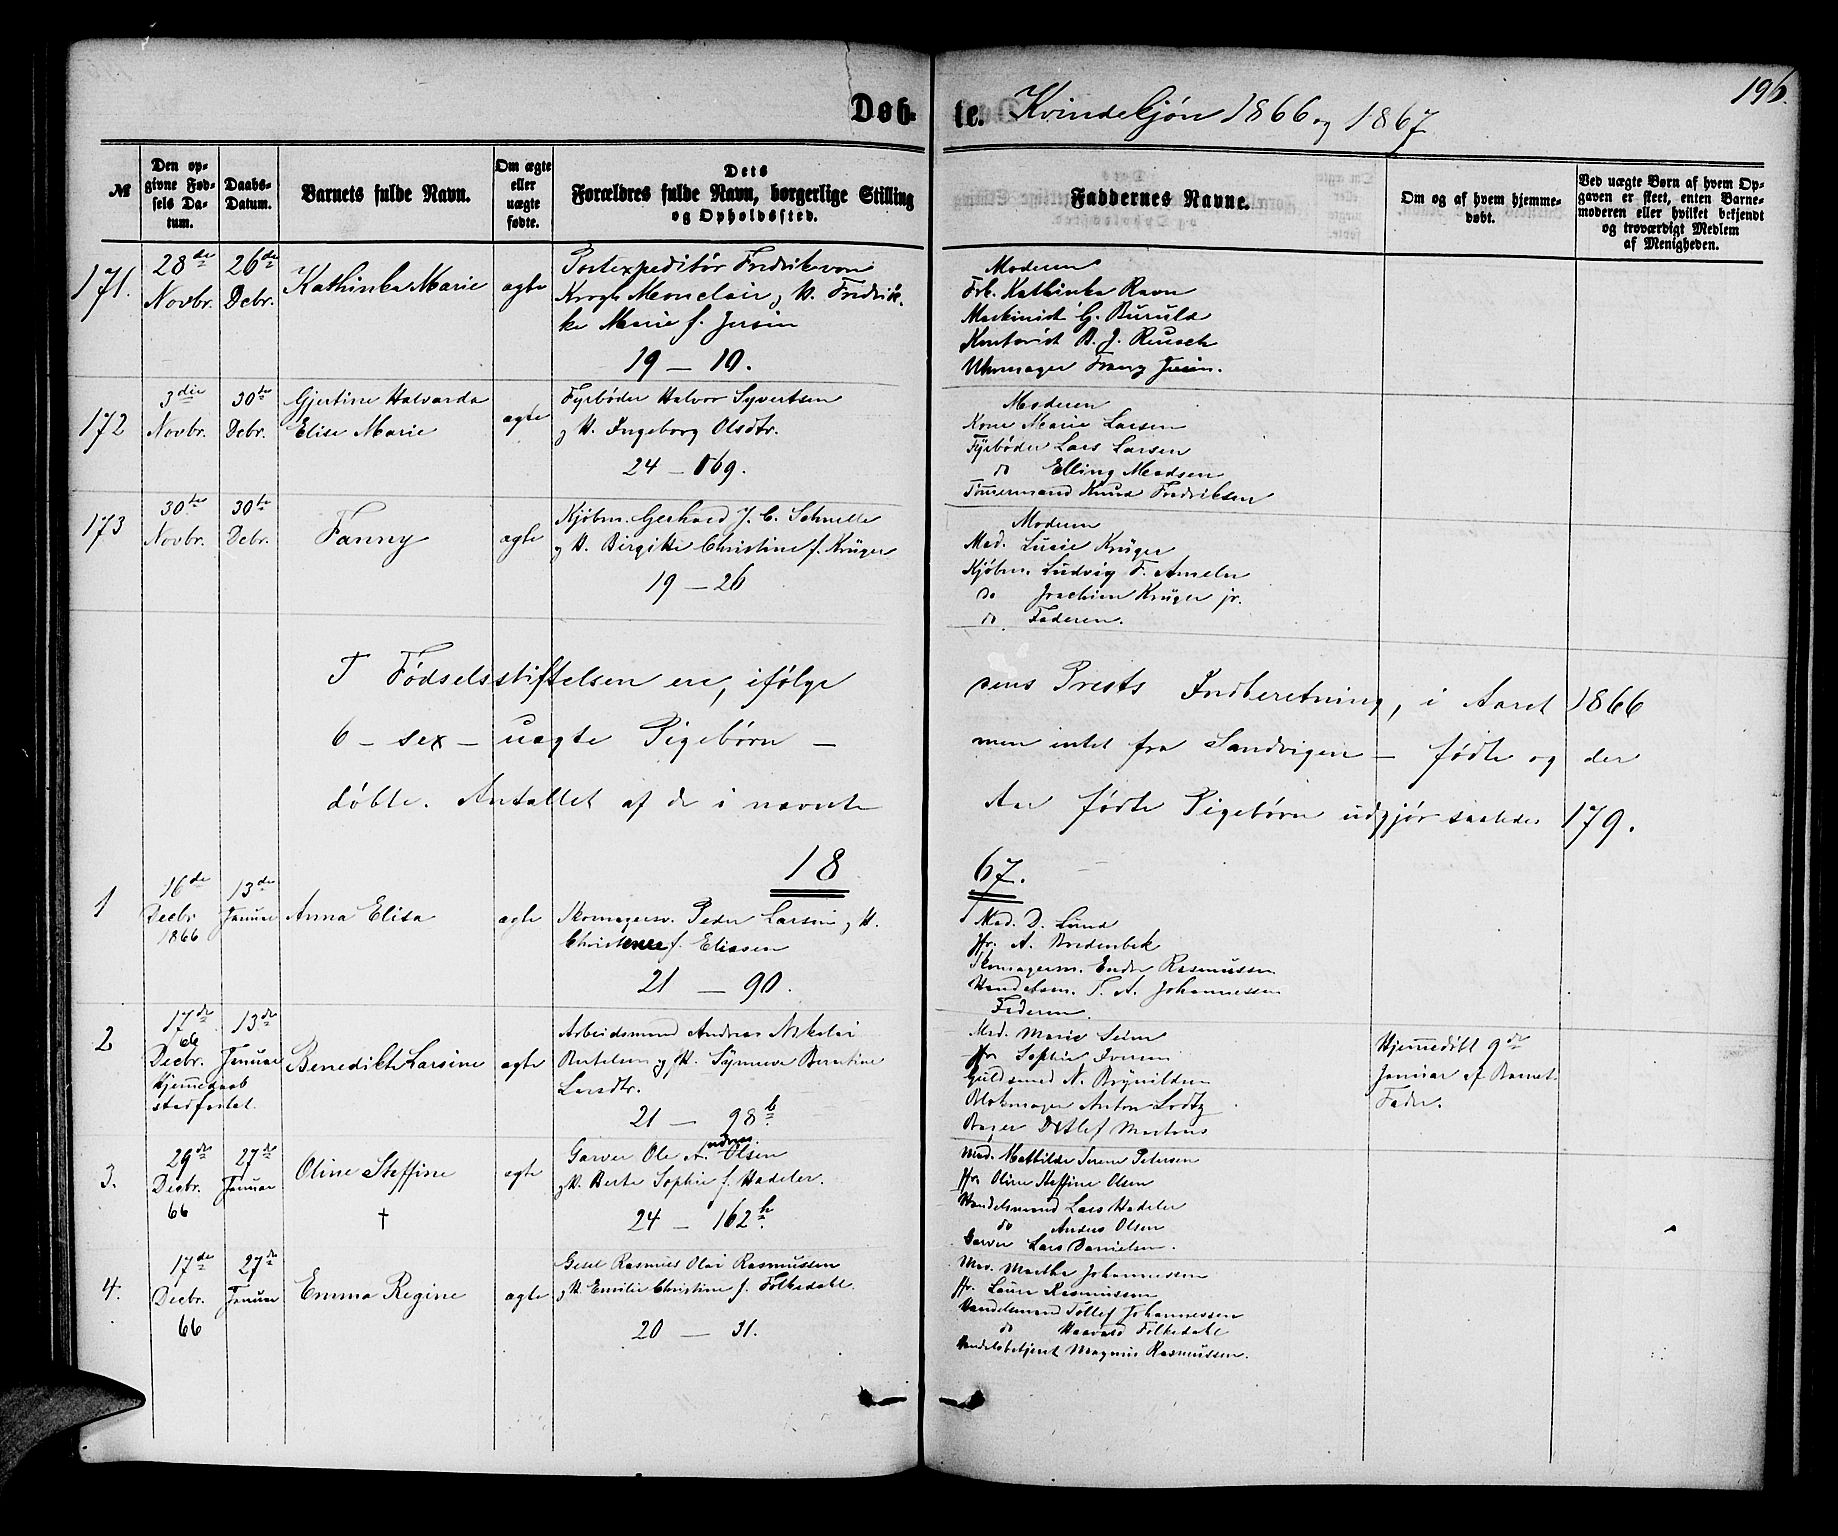 196.
Døb-te. Kvindekjøn 1866 og 1867
№
Den op-
givne Fød-
sels Da-
tum.
Daabs-
Datum.
Barnets fulde Navn.
Om ægte
eller
uægte
fødte.
Dets
Forældres fulde Navn, borgerlige Stilling
og Opholdssted.
Faddernes Navne.
Om og af hvem hjemme-
døbt.
Ved uægte Børn af hvem Op-
gaven er skeet, enten Barne-
moderen eller hvilket bekjendt
og troværdigt Medlem
af Menigheden.
171.
28de
Novbr.
26de
Debr.
Kathinka Marie
ægte
Postexpeditør Fredrik von
Krogh Monclair og H. Fredrik-
ke Marie f. Jersin
19 — 10.
Moderen
Frk. Kathinka Ravn
Maskinist G. Buruld
Kontorist B. J. Reusch
Uhrmager Franz Jersin.
172
3die
Novbr.
30te
Debr.
Gjertine Halvarda
Elise Marie
ægte
Fyrbøder Halvor Syvertsen
og H. Ingeborg Olsdtr.
24 — 169.
Moderen
Kone Marie Larsen
Fyrbøder Lars Larsen
do Elling Madsen
Tømermand Knud Fredriksen
173
30te
Novbr.
30te
Debr.
Fanny
ægte
Kjøbm. Gerhard J. C. Schnelle
og H. Birgitte Christine f. Krüger
19 — 26
Moderen
Mad. Lucie Krüger
Kjøbm. Ludvig F. Ameln
do Joachim Krüger jr.
do Faderen.
I Fødselsstiftelsen ere, ifølge dens Prests Indberetning, i Aaret 1866
6 - sex - uægte Pigebørn — men intet fra Sandvigen — fødte og der
døbte. Antallet af de i nævnte Aar fødte Pigebørn udgjør saaledes 179.
18 67.
1
16de
Decbr.
1866
13de
Januar
Anna Elisa
ægte
Skomagersv. Peder Larsen og H.
Christense f. Eliasen
21 — 90.
Mad. D. Lund
Jfr. A. Bredenbek
Skomagersv. Endre Rasmussen
Handelsm. T. A. Johannessen
Faderen
2
17de
66
Decbr.
Hjemedaab
stadfæstet.
13de
Januar
Benedikte Larsine
ægte
Arbeidsmand Andreas Nikolai
Bertelsen og H. Synneve Berntine
Larsdtr.
21 — 98b.
Mad. Marie Seim
Jfr. Sophie Iversen
Guldsmed N. Brynildsen
Blokmager Anton Lodtz
Bager Detlef Martens
Hjemedøbt 9de
Januar af Barnets
Fader.
3.
29de
Decbr.
66
27de
Januar
Oline Steffine
†
ægte
Garver Ole A. Olsen
og H. Berte Sophie f. Hadeler.
24 — 162b.
Mad. Mathilde Serene Petersen
Jfr. Oline Steffine Olsen
Handelsmand Lars Hadeler
do Anders Olsen
Garver Lars Danielsen.
4.
17de
Decbr.
66
27de
Januar
Emma Regine
ægte
Gesel Rasmus Olai Rasmussen
og H. Emilie Christine f. Folkedahl.
20 — 31.
Mad. Martha Johannessen
Jfr. Laura Rasmussen
Handelsmand Tollef Johannessen
do Haavard Folkedahl
Handelsbetjent Magnus Rasmussen.